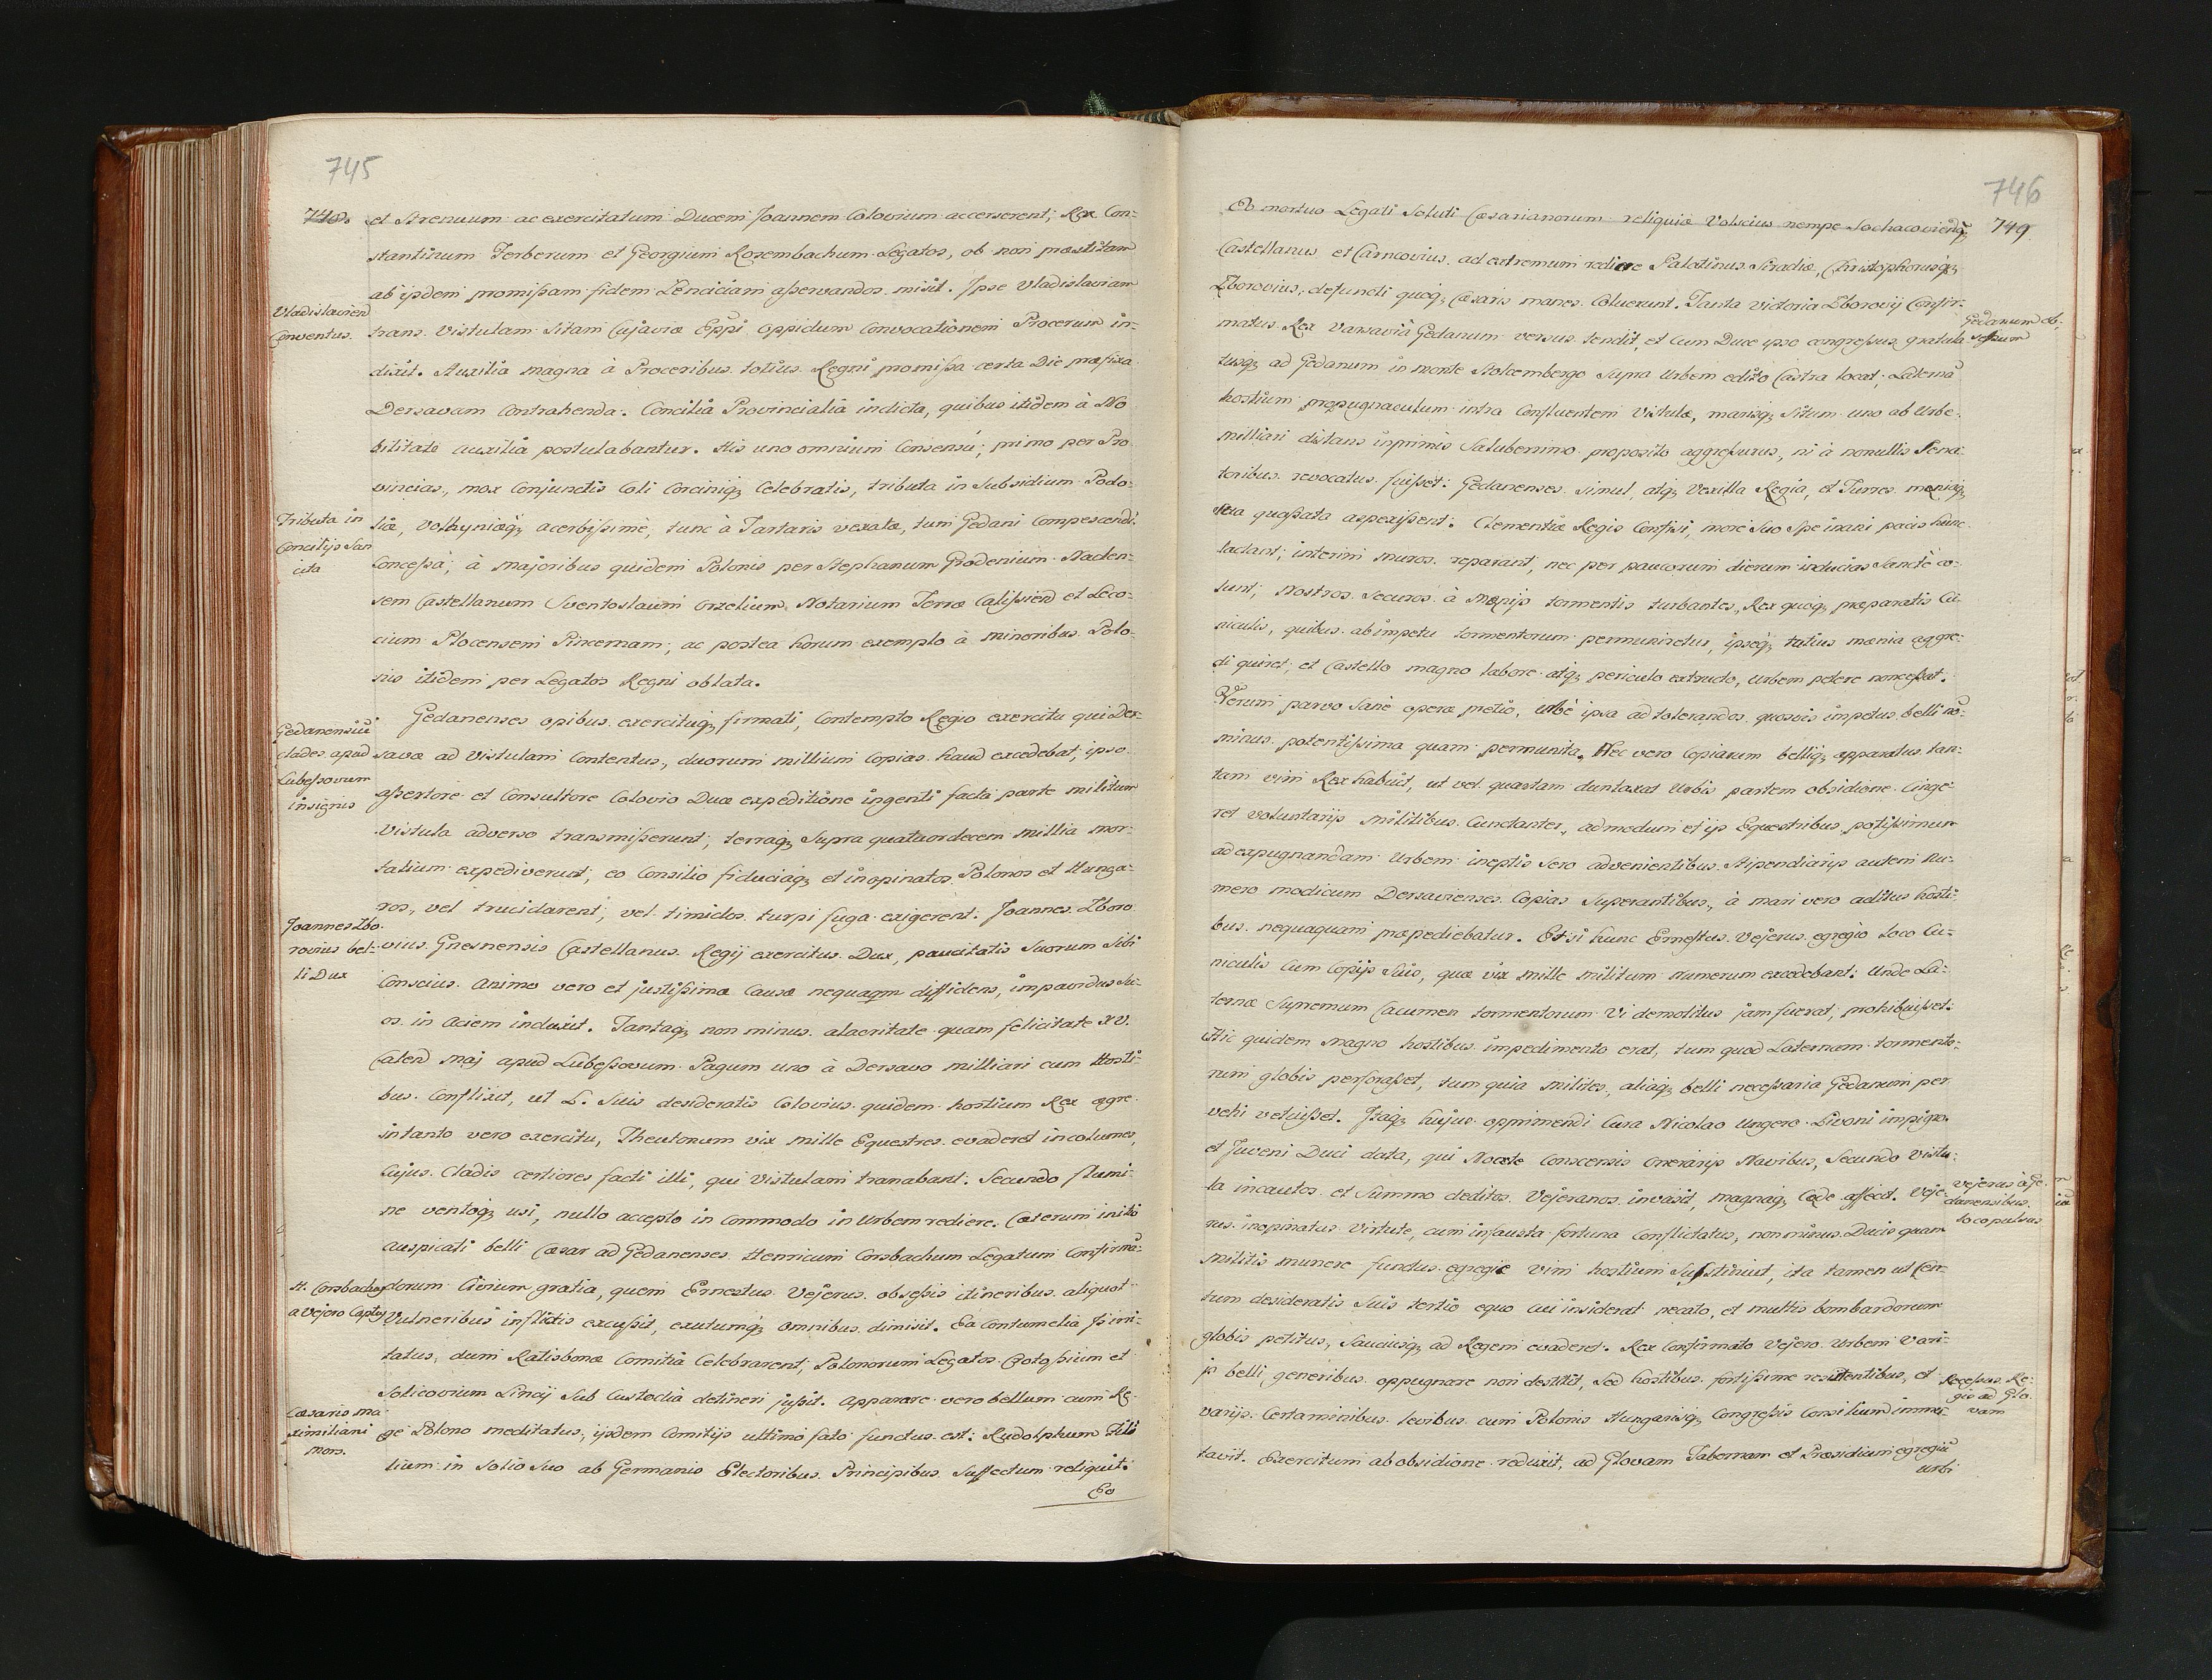 745
748.
et strenuum ac exercitatum Ducem Joannem Colovium accerserent; Rex Con-
stantinum Ferberum et Georgium Rosembachum Legatos, ob non præstitam
ab ijsdem promissam fidem Lenciciam asservandos misit. Ipse Vladislaviam
Vladislavien
Conventus.
trans Vistulam sitam Cujaviæ Eppi oppidum Convocationem Procerum in-
dixit. Auxilia magna à Proceribus totius Regni promissa certa Die præfixa
Dersavam Contrahenda. Concilia Provincialia indicta, quibus itidem à No
bilitate auxilia postulabantur. His uno omnium Consensu; primo per Pro
vincias, mox Conjunctis Coli Corcinią Celebratis, tributa in Subsidium Podo-
Tributa in
Concilijs San
cita
liæ, Volhyniæq; acerbissimè, tunc à Tartaris vexatæ, tum Gedani Compescendi
Concessa; à Majoribus quidem Polonis per Stephanum Grodenium Naclen-
sem Castellanum Sventoslaum Orzelium Notarium Terræ Calissien et Leco-
cium Plocensem Pincernam; ac postea horum exemplo à minoribus Polo-
nis itidem per Legatos Regni oblata.
Gedanensiũ
clades apud
Lubessovum
insignis
Gedanenses opibus exercituq; firmati, Contempto Regio exercitu qui Der-
savæ ad Vistulam Contentus, duorum millium Copias haud excedebat; ipso
assertore et Consultore Colovio Duce expeditione ingenti facta parte militum
Vistula adverso transmisserunt; terraq; Supra quatuordecem millia mor-
talium expediverunt; eo Consilio fiduciaq; et inopinatos Polonos et Hunga-
ros, vel trucidarent, vel timidos turpi fuga exigerent. Joannes Zboro
Joannes Zbo-
rovius bel-
li Dux
vius Gnesnensis Castellanus Regij exercitus Dux, paucitatis Suorum Sibi
Conscius Animo vero et justissimæ Causæ nequaqm diffidens, impavidus Su-
os in Aciem induxit. Tantaq; non minus alacritate quam felicitate XV.
Calend Maj apud Lubessovum Pagum uno à Dersavo milliari cum Hosti-
bus Conflixit, ut L. Suis desideratis Colovius quidem hostium Rex ægre
in tanto vero exercitu, Theutonum vix mille Equestres evaderet incolumes,
Cujus Cladis certiores facti illi, qui Vistulam tranabant. Secundo flumi-
ne ventoq; usi, nullo accepto in commodo in Urbem rediere. Cæterum initio
auspicati belli Cæsar ad Gedanenses Henricum Corsbachum Legatum Confirman-
H. Corsbachus
a Vejero Captus
dorum Civium gratia, quem Ernestus Vejerus obsessis itineribus aliquot
Vulneribus inflictis excussit, exutumq; omnibus dimisit. Ea Contumelia Is irri-
tatus, dum Ratisbonæ Comitia Celebrarent, Polonorum Legatos Crotossium et
Solicovium Lincij Sub Custodia detineri jussit. Apparare vero bellum cum Re-
Cæsaris Ma
ximiliani
mors.
ge Polono meditatus, ijsdem Comitijs ultimo fato functus est: Rudolphum Fili
lium in Solio Suo ab Germanis Electoribus Principibus Suffectum reliquit.
Eo
746
749
Eo mortuo Legati Soluti Cæsarianorum reliquiæ Volscius nempe Sochacovienq;
Castellanus et Carncovius ad extremum rediere Palatinus Siradiæ, Christophorusq;
Zborovius, defuncti quoq; Cæsaris manes Coluerunt. Tanta victoria Zborovij Confir-
Gedanum ob-
sessum
matus Rex Varsavia Gedanum versus tendit, et Cum Duce ipso congressus gratula
tusq; ad Gedanum in monte Stolcembergo Supra Urbem edito Castra locat; Laterna
hostium propugnaculum intra Confluentem Vistulæ, marisq; Situm uno ab Urbe
milliari distans inprimis Saluberrimo proposito aggressurus, ni à nonnullis Sena-
toribus revocatus fuisset: Gedanenses simul, atq; Vexilla Regia, et Turres mœniaq;
sua quassata aspexissent. Clementiæ Regis Confisi, more Suo Spe inani pacis hunc
lactant; interim muros reparant, nec per paucorum dierum inducias Sanctè co-
lunt; Nostros Securos à Mœnijs tormentis turbantes, Rex quoq; præparatis Cu-
niculis, quibus ab impetu tormentorum permuniretur, ipseq; tutius mœnia aggre-
di quiret; et Castello magno labore atq; periculo extructo, Urbem petere non cessat.
Verum parvo Sanè operæ pretio, Urbe ipsa ad tolerandos quosvis impetus belli no-
minus potentissima quam permunita. Nec vero Copiarum belliq; apparatus tan-
tam vim Rex habuit, ut vel quartam duntaxat Urbis partem obsidione Cinge-
ret Voluntarijs militibus Cunctanter, admodum et ijs Equestribus potissimum
ad expugnandam Urbem ineptis Sero advenientibus Stipendiarijs autem Nu-
mero modicum Dersavienses Copias Superantibus, à mari vero aditus hosti-
bus nequaquam præpediebatur. Etsi hunc Ernestus Vejerus egregio loco Cu-
niculis Cum Copijs Suis, quæ vix mille militum numerum excedebant: Unde La-
ternæ Supremum Cacumen tormentorum Vi demolitus jam fuerat, prohibuisset.
Hic quidem magno hostibus impedimento erat, tum quod Laternam tormento-
rum globis perforasset, tum quia milites, aliaq; belli necessaria Gedanum per
vehi vetuisset. Itaq; hujus opprimendi Cura Nicolao Ungero Livoni impigro
et Juveni Duci data, qui Nocte Conscensis Onerarijs Navibus, Secundo Vistu-
la incautos et Summo deditos Vejeranos invasit, magnaq; Cæde affecit. Veje-
Vejerus à Ge-
danensibus
loco pulsus
rus inopinatus Virtute, cum infausta fortuna Conflictatus, non minus Ducis quam
militis munere fundus egregie vim hostium Sustinuit, ita tamen ut Cen-
tum desideratis Suis tertio equo cui insiderat necato, et multis bombardorum
globis petitus, Sauciusq; ad Regem evaderet. Rex Confirmato Vejero Urbem Vari-
js belli generibus oppugnare non destitit, Sed hostibus fortissime resistentibus, et
Recessus Re-
gis ad Glo-
vam
varijs Certaminibus levibus cum Polonis Hungarisq; Congressis Consilium immu-
tavit. Exercitum ab obsidione reduxit, ad Glovam Tabernam et Præsidium egregiũ
Urbi